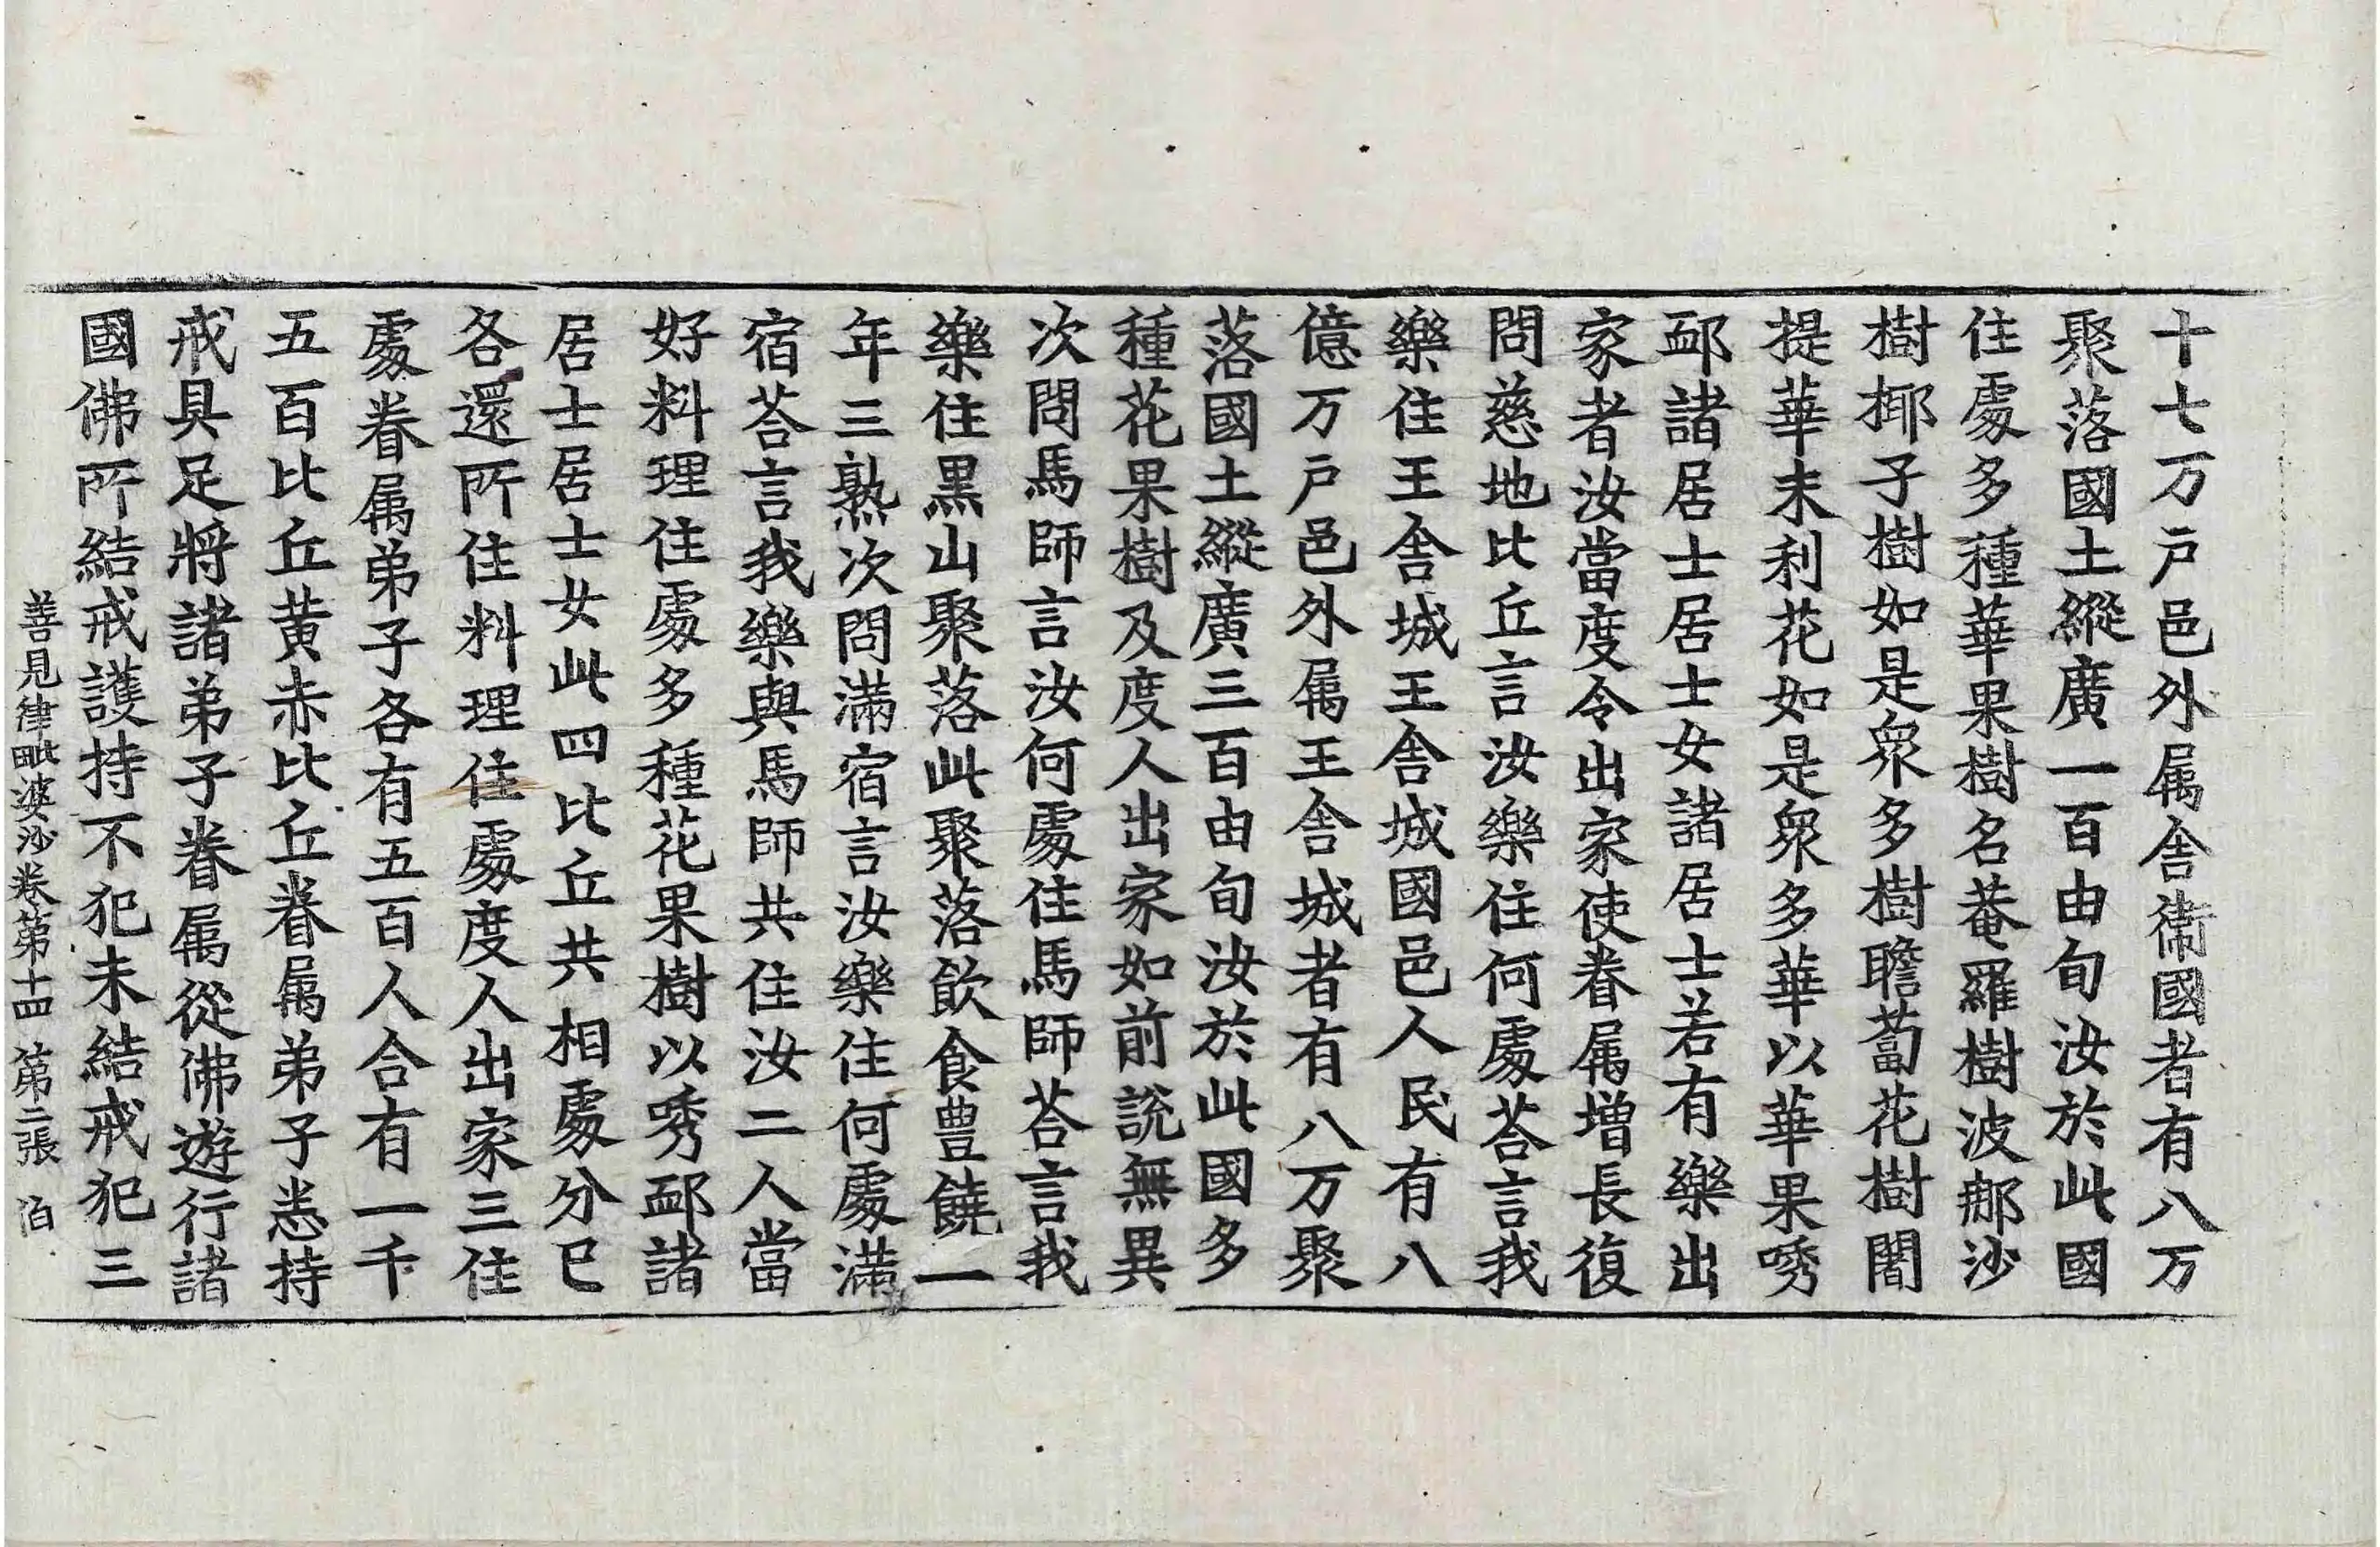 十七万戸邑外属舎衛國者有八万
聚落國土縱廣一百由旬汝於此國
住處多種華果樹名菴羅樹波那沙
樹揶子樹如是衆多樹瞻蔔花樹闍
提華末利花如是衆多華以華果㗀
䣛諸居士居士女諸居士若有樂出
家者汝當度令出家使眷属增長復
問慈地比丘言汝樂住何處荅言我
樂住王舎城王舎城國邑人民有八
億万戸邑外属王舎城者有八万聚
落國土縱廣三百由旬汝於此國多
種花果樹及度人出家如前說無異
次問馬師言汝何處住馬師荅言我
樂住黒山聚落此聚落飲食豊饒一
年三熟次問滿宿言汝樂住何處滿
宿荅言我樂與馬師共住汝二人當
好料理住處多種花果樹以㗀䣛諸
居士居士女此四比丘共相處分已
各還所住料理住處度人出家三住
處眷属弟子各有五百人合有一千
五百比丘黄赤比丘眷属弟子恙持
戒具足將諸弟子眷属從佛遊行諸
國佛所結戒護持不犯未結戒犯三
善見律毗婆沙卷第十四 第二張 伯